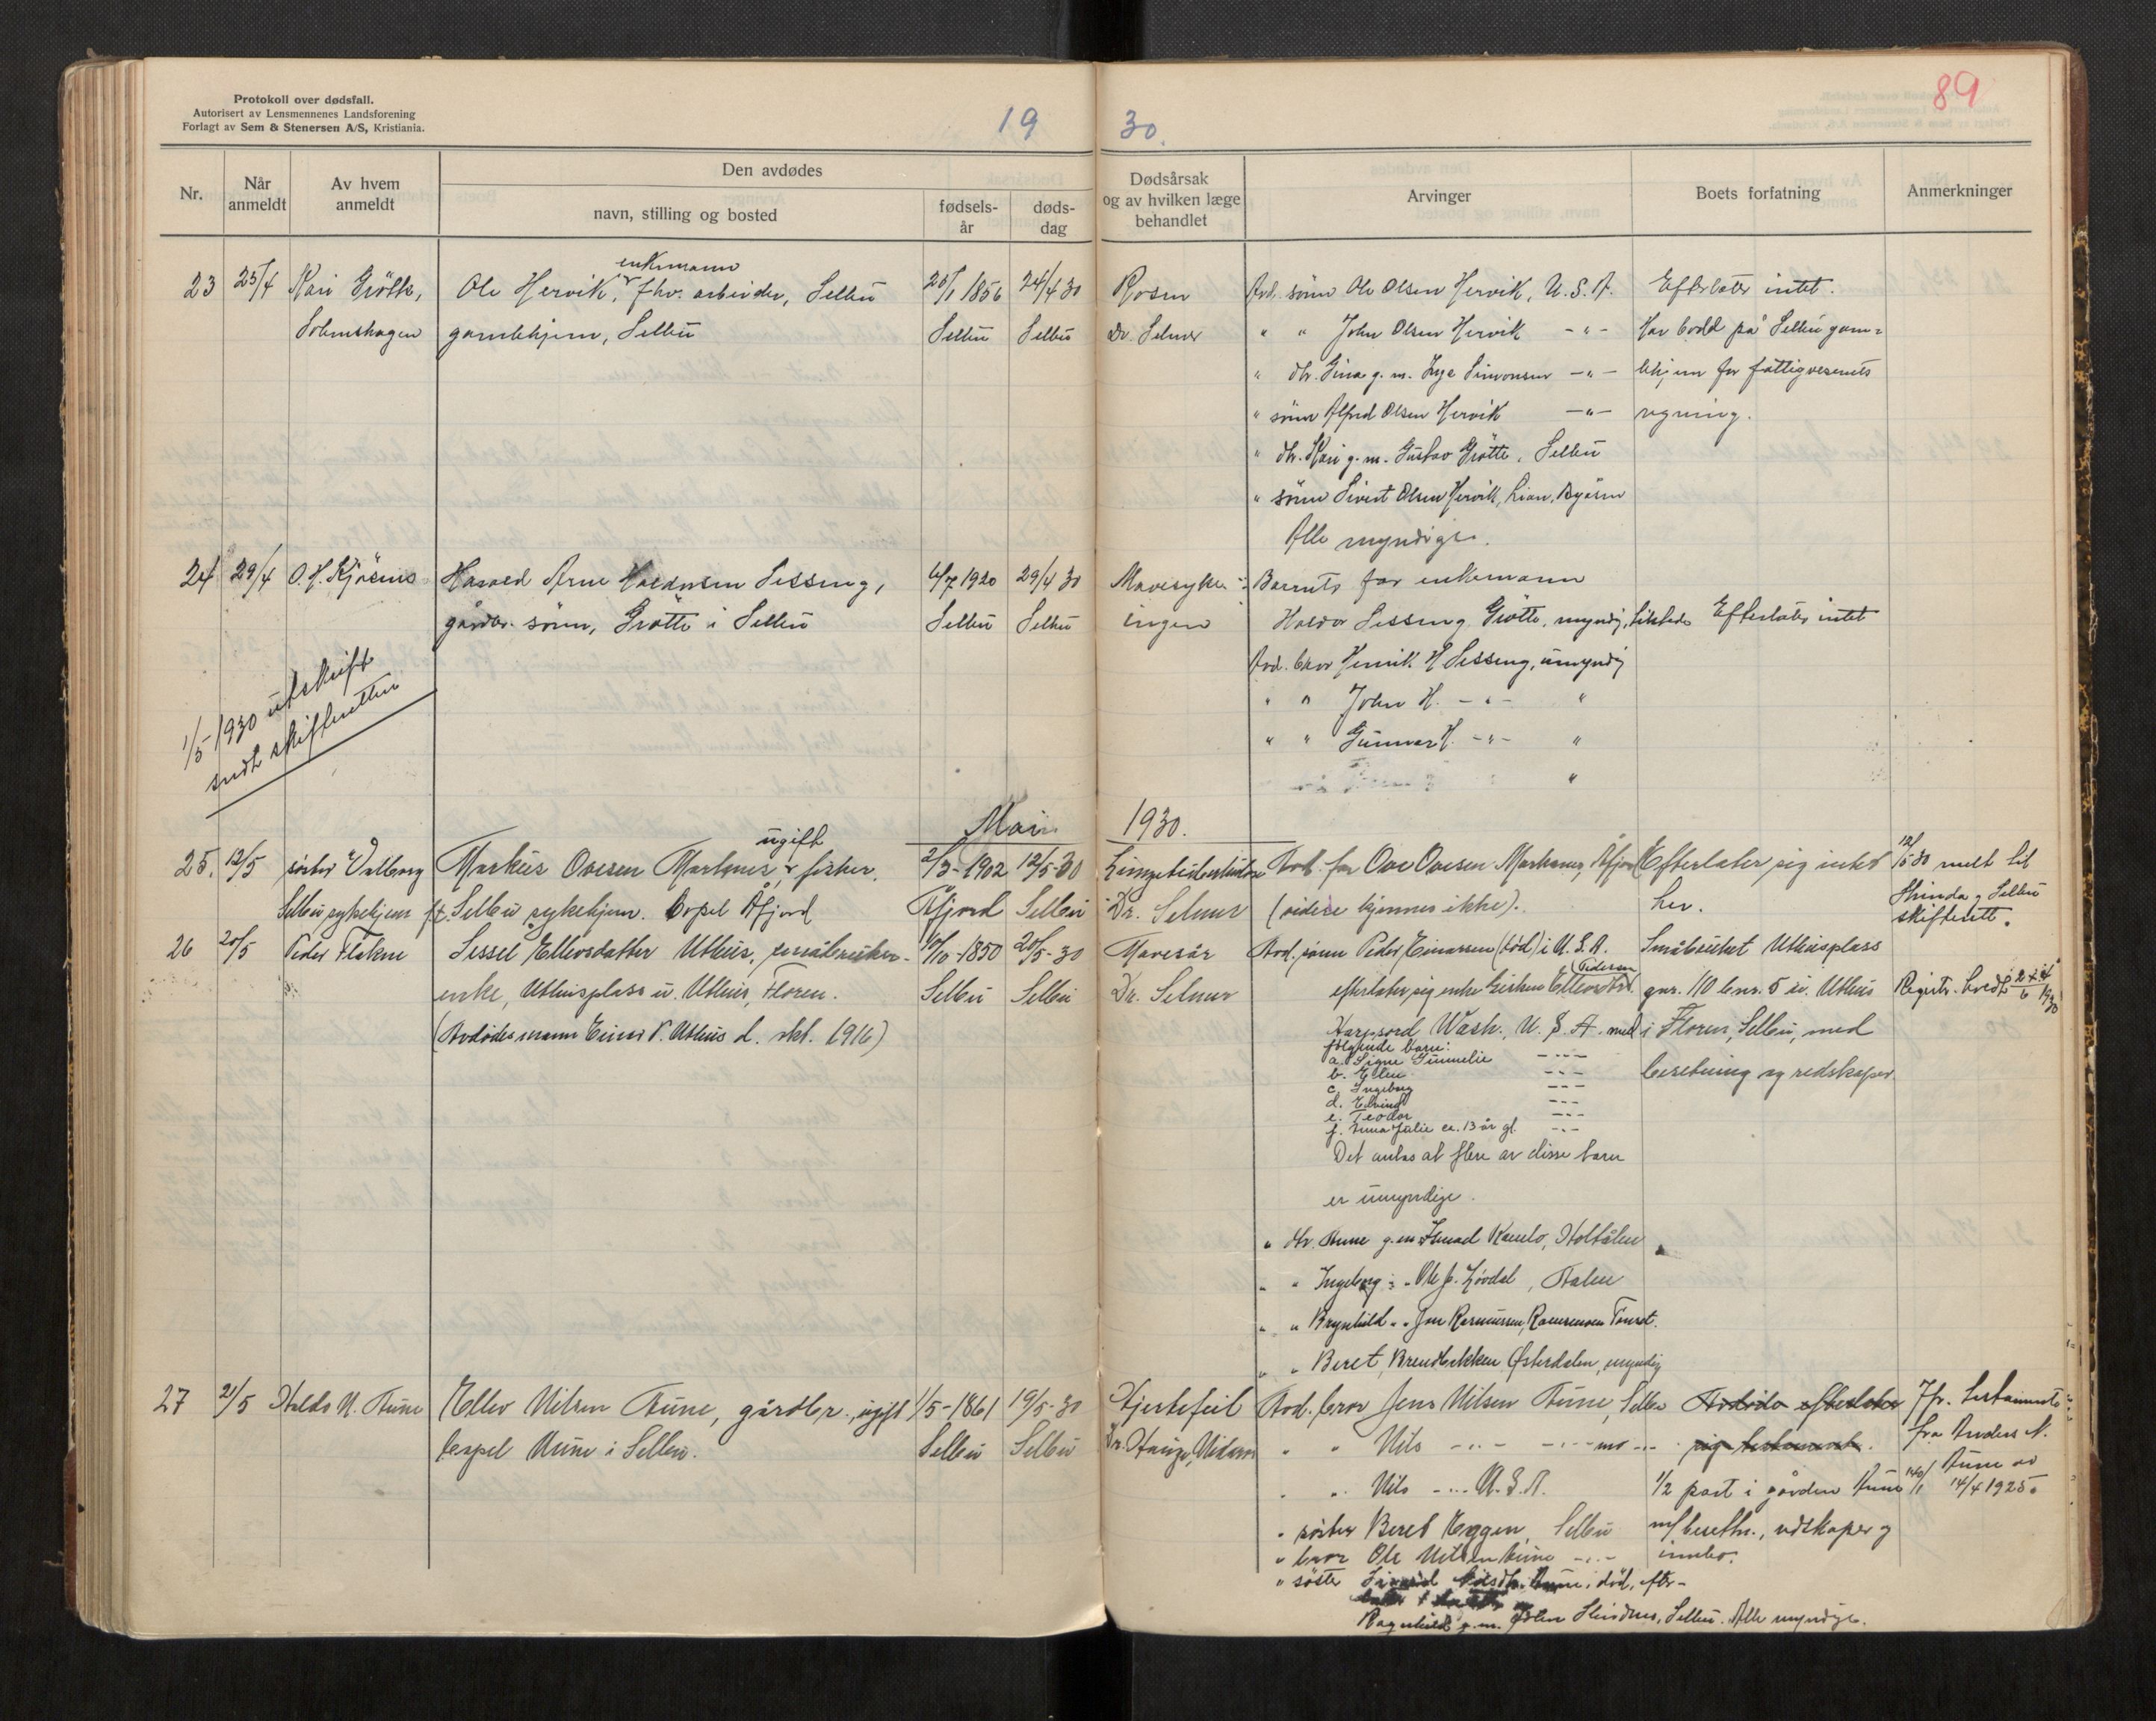 Protokoll over dødsfall.
Autorisert av Lensmennenes Landsforening
Forlagt av Sem & Stenersen A/S, Kristiania.
19 30.
89
Nr.
Når anmeldt
Av hvem anmeldt
Den avdødes
navn, stilling og bosted
fødsels-år
døds-dag
Dødsårsak og av hvilken læge behandlet
Arvinger
Boets forfatning
Anmerkninger
23 25/4 Kari Grøtte,
Solemshagen
enkemann
Ole Hervik, fhv. arbeider, Selbu
gamlehjem, Selbu
1856 24/4 30
Selbu Selbu
Rosen
Dr. Selmer
Avd. sønn Ole Olsen Hervik, U.S.A.
" " John Olsen Hervik - " -
" dtr. Gina g. m. Inge Simonsen - " -
" sønn Alfred Olsen Hervik - " -
" dtr. Kari g. m. Gustav Grøtte, Selbu
" sønn Sivert Olsen Hervik, Lian, Byåsen
Alle myndige.
Efterlater intet.
Har bodd på Selbu gam=
lehjem for fattigvesenets
regning.
24 29/4 O. H. Kjøsnes
Harald Arne Haldorsen Sesseng,
gårdbr. sønn, Grøtte i Selbu
6/7 1920 29/4 30
Selbu Selbu
Mavesyke
ingen
Barnets far enkemann
Haldor Sesseng Grøtte, myndig, tilstede
Avd. bror Henrik H Sesseng, umyndig
" " John H. - " - "
" " Gunnar H. - " - "
"
Efterlater intet
1/5-1930 utskrift
sendt skifteretten
Mai 1930.
25. 12/5 søster Valborg
Selbu sykehjem
ugift
Markus Ovesen Markanes, fisker,
f.t. Selbu sykehjem. Bopel Åfjord
2/3-1902 12/5-30
Åfjord Selbu
Lungetuberkulose
Dr. Selmer
Avd. far Ove Ovesen Markanes, Åfjord
(videre kjennes ikke).
Efterlater sig intet
her.
12/5 30 meldt til
Strinda og Selbu
skifterett.
26 20/5 Peder Flakne
Sessel Ellevsdatter Uthus, småbruker-
enke, Uthusplass u. Uthus, Floren.
(Avdødes mann Einar P. Uthus d. okt. 1916)
10/10-1850 20/5-30
Selbu Selbu
Mavesår
Dr. Selmer
Avd. sønn Peder Einarsen (død) i U.S.A.
Pedersen
efterlater sig enke
Wash. U.S.A. med
følgende barn:
a. Signe Gunnelie - " -
b. Ellen - " -
c. Ingeborg - " -
d. Eivind - " -
e. Teodor - " -
f. Anna Julie ca. 13 år gl. - " -
Det antas at flere av disse barn
er umyndige.
" dtr. Anne g. m. Kanelo, Holtålen
" " Ingeborg " " Ole J. Løvdal, Aalen
" " Brynhild " " Jon Rasmussen, Tønset.
" " Beret, Brendbekken Østerdalen, myndig
Småbruket Uthusplass
gnr. 110 bnr. 5 av Uthus
i Floren, Selbu, med
besetning og redskaper.
Registr. holdt 24/6 1930
27 21/5 Haldo N. Aune
Ellev Nilsen Aune, gårdbr., ugift
bopel Aune i Selbu.
1/5-1861 19/5-30
Selbu Selbu
Hjertefeil
Dr. Hauge, Nidaros
Avd. bror Jens Nilsen Aune, Selbu
" " Nils - " - - " -
" " Nils - " - U.S.A.
" søster Beret Eggen, Selbu
" bror Ole Nilsen Aune - " -
" søster Aune, død, efter-
Ragnhild g. m. Selbu. Alle myndige.
Avdøde efterlater
sig testament.
1/2 part i gården Aune 140/1
m/ besetn., redskaper og
innbo.
Jfr. testamente
fra Anders N.
Aune av
14/4 1925.